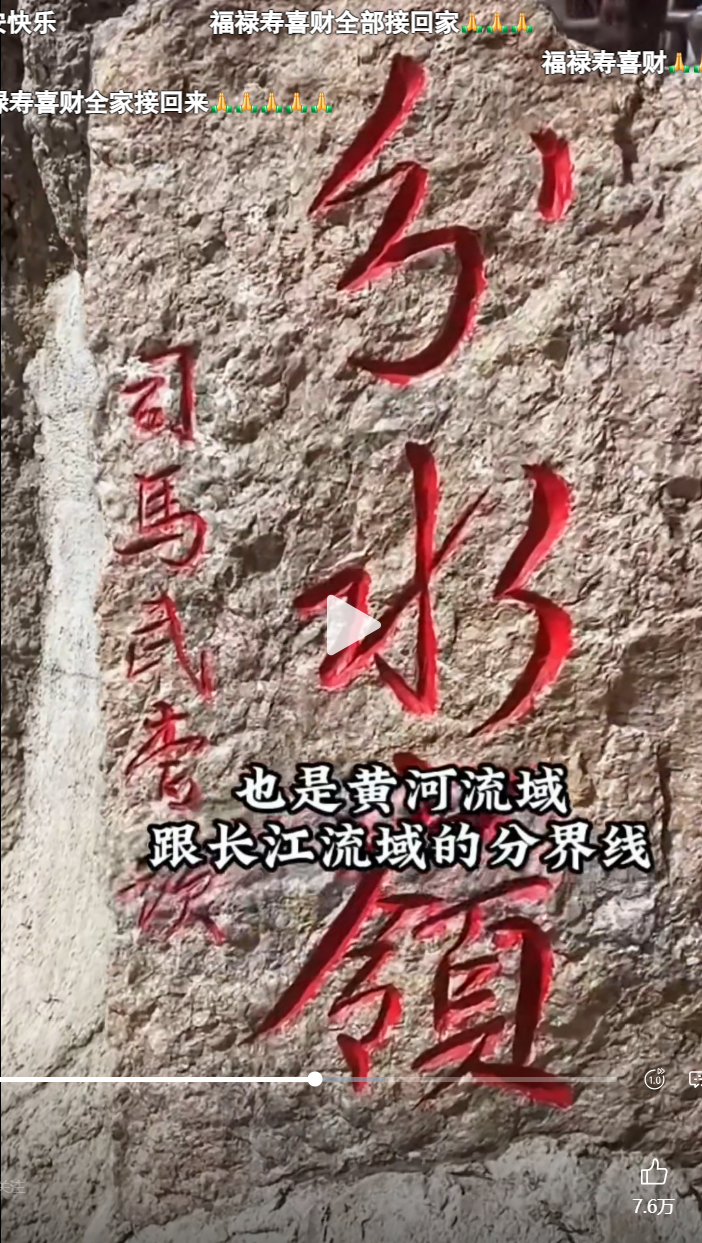 安快乐
福禄寿喜财全部接回家🙏🙏🙏
福禄寿喜财🙏🙏
禄寿喜财全家接回来🙏🙏🙏🙏🙏
分水嶺
司馬武
也是黄河流域
跟长江流域的分界线
1.0
关注
7.6万